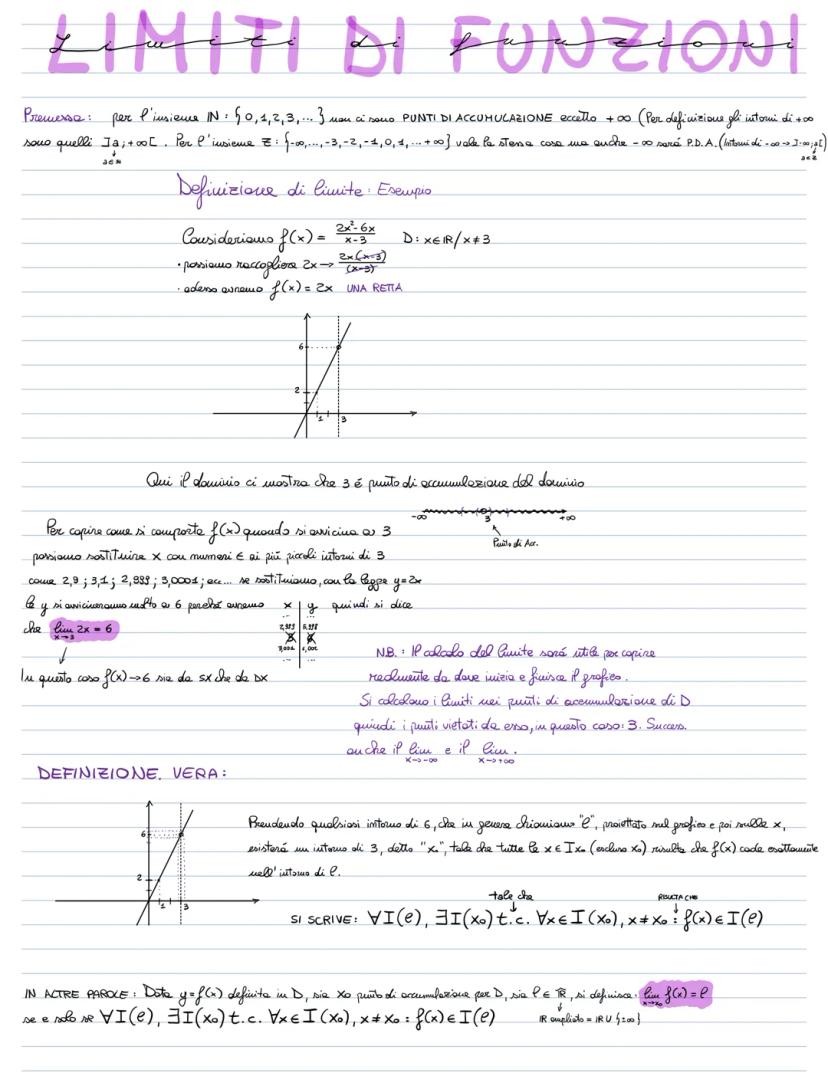 LIMITI DI FUNZIONI
Limiti di funzioni
Premessa: per l'insieme IN: {0,1,2,3,...} non ci sono PUNTI DI ACCUMULAZIONE eccetto +∞ (Per definizione gli intorni di +∞
sono quelli ]a;+∞[. Per l'insieme Z: {-∞,...,-3,-2,-1,0,1,...+∞} vale la stessa cosa ma anche -∞ sará P.D.A. (Intorni di -∞ → ]-∞;a[)
a∈N
a∈Z
Definizione di limite: Esempio
Consideriamo f(x) = 2x²-6x / x-3 D: x∈IR/x≠3
· possiamo raccogliere 2x → 2x(x-3) / (x-3)
· adesso avremo f(x) = 2x UNA RETTA
6
2
1 3
Qui il dominio ci mostra che 3 é punto di accumulazione del dominio
-∞ 3 +∞
Punto di Acc.
Per capire come si comporta f(x) quando si avvicina a 3
possiamo sostituire x con numeri ∈ ai piú piccoli intorni di 3
come 2,9; 3,1; 2,999; 3,0001; ecc... se sostituiamo, con la legge y=2x
le y si avvicineranno molto a 6 perché avremo x | y quindi si dice
... ...
2,999 5,998
3 6
3,001 6,002
... ...
che lim 2x = 6
x→3
In questo caso f(x)→6 sia da SX che da DX
N.B.: Il calcolo del limite sará utile per capire
realmente da dove inizia e finisce il grafico.
Si calcolano i limiti nei punti di accumulazione di D
quindi i punti vietati da esso, in questo caso: 3. Success.
anche il lim e il lim.
x→-∞ x→+∞
DEFINIZIONE VERA:
6
2
1 3
Prendendo qualsiasi intorno di 6, che in genere chiamiamo "ℓ", proiettato sul grafico e poi sulla x,
esisterá un intorno di 3, detto "x₀", tale che tutte le x ∈ Ix₀ (escluso x₀) risulta che f(x) cade esattamente
nell'intorno di ℓ.
tale che RISULTA CHE
SI SCRIVE: ∀I(ℓ), ∃I(x₀) t.c. ∀x∈I(x₀), x≠x₀ : f(x)∈I(ℓ)
IN ALTRE PAROLE: Data y=f(x) definita in D, sia x₀ punto di accumulazione per D, sia ℓ ∈ R̄, si definisce: lim f(x) = ℓ
x→x₀
se e solo se ∀I(ℓ), ∃I(x₀) t.c. ∀x∈I(x₀), x≠x₀ : f(x)∈I(ℓ)
IR ampliato = IR U {±∞}